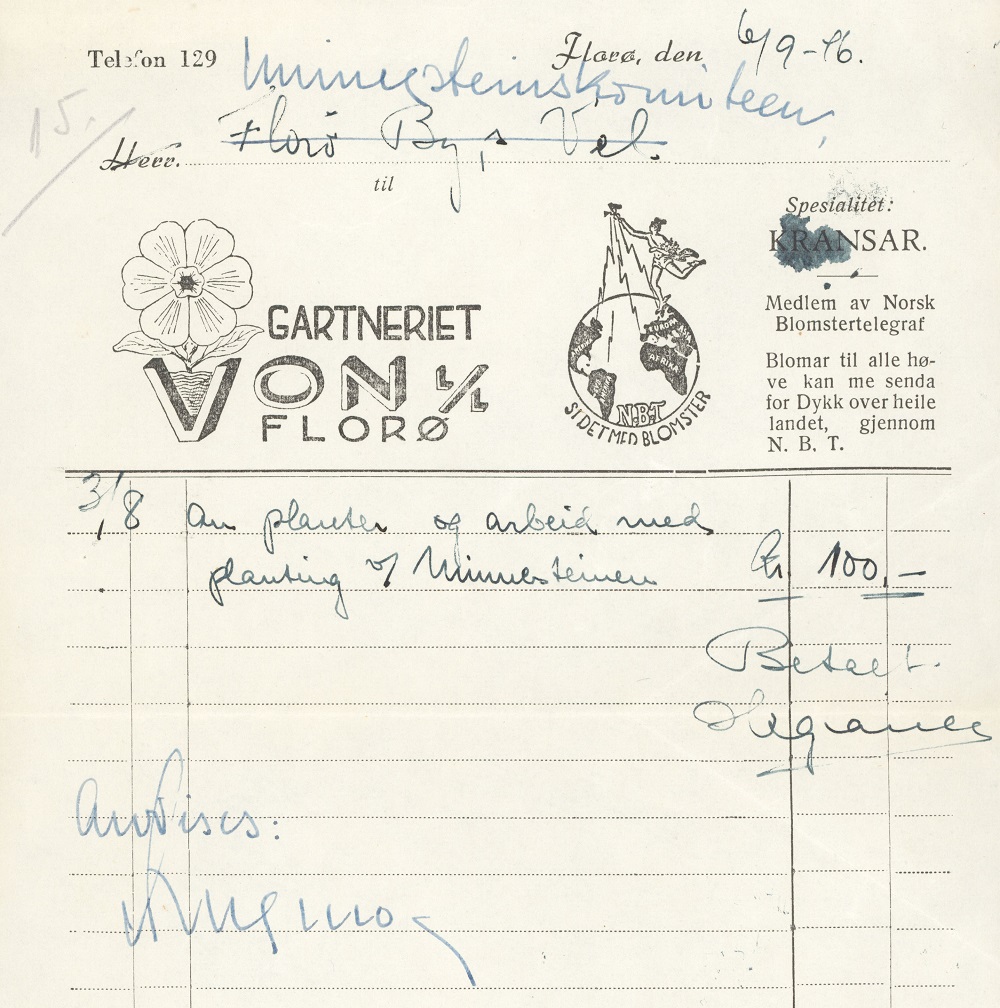 Telefon 129
Florø, den 6/9-46.
Minnesteinskomiteen,
15.
Herr. Florø By,s Vel.
til
GARTNERIET
VON L/L
FLORØ
EUROPA
AFRIKA
N.B.T
SI DET MED BLOMSTER
Spesialitét:
KRANSAR.
Medlem av Norsk
Blomstertelegraf
Blomar til alle hø-
ve kan me senda
for Dykk over heile
landet, gjennom
N. B. T.
3/8 An planter og arbeid med
planting v/ Minnesteinen Kr 100,-
Betalt.
Anvises: